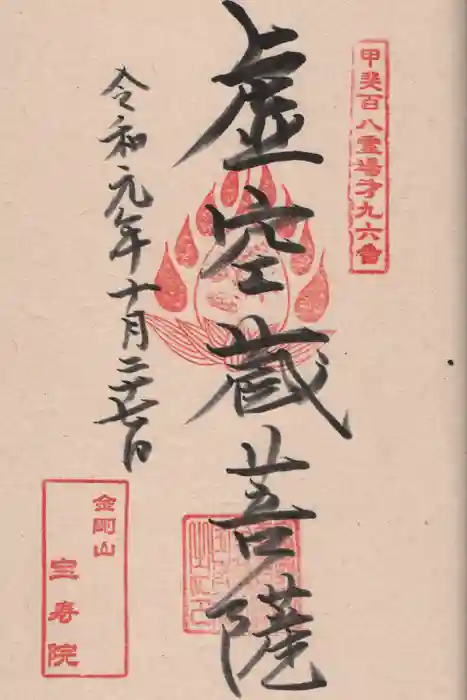 甲斐百八霊場才九六番
虚空蔵菩薩
令和元年十月二十七日
金剛山
宝寿院